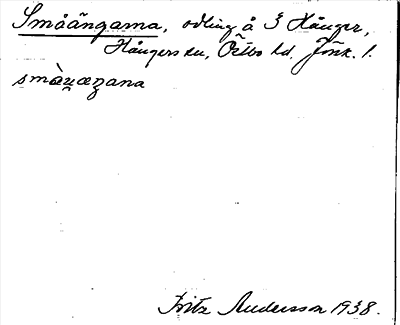 Småängarna, odling å 3 Hånger,
Hångers sn, Östbo hd. Jönk. l.
smàu̯æŋana
Fritz Andersson 1938.